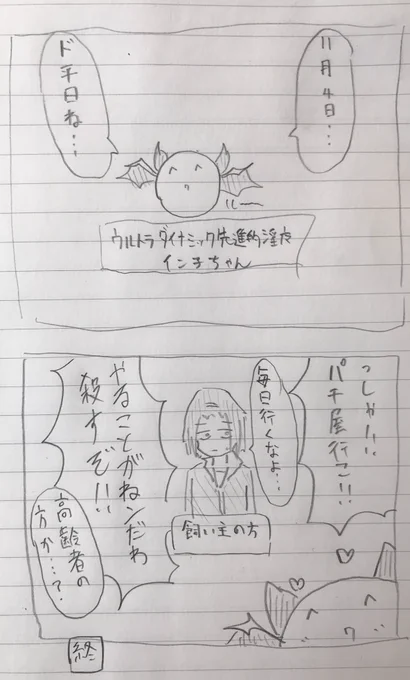 11月4日…
ド平日ね…
ウルトラダイナミック先進的淫夜
イン子ちゃん
っしゃー!!
パチ屋行こ!!
毎日行くなよ…
飼い主の方
やることがねンだわ
殺すぞ!!
高齢者の
方か…?
終